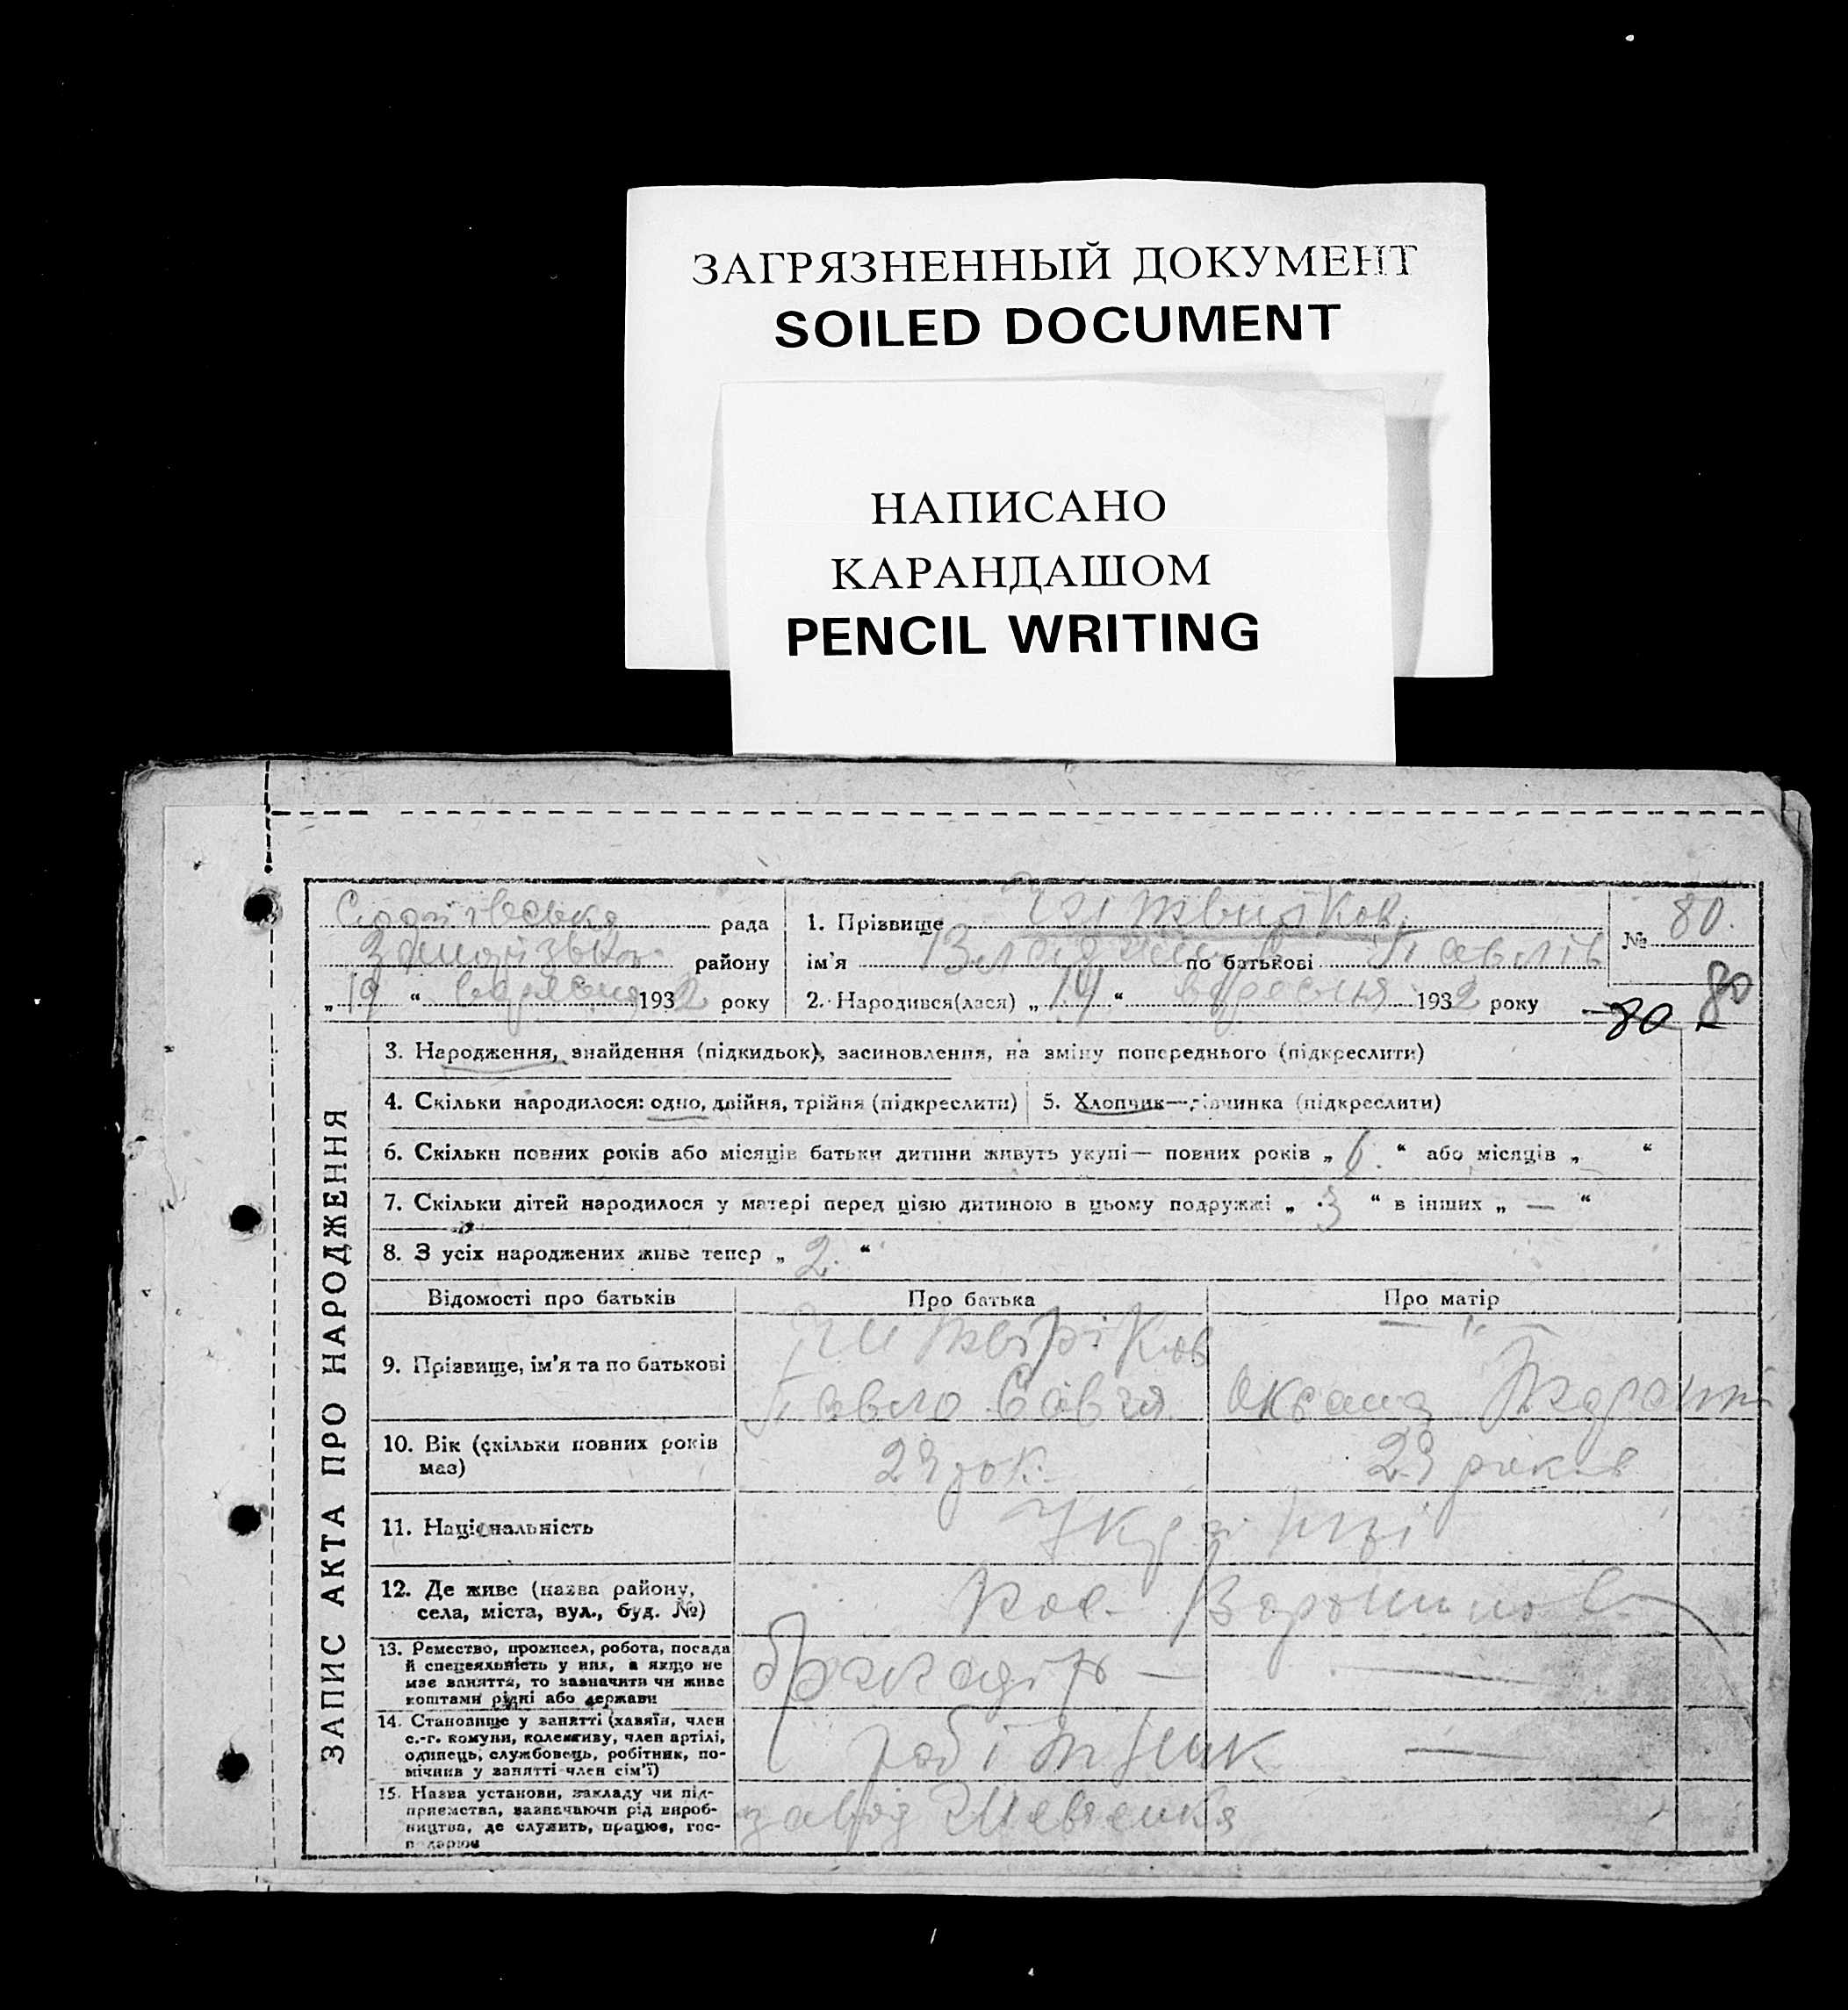 ЗАГРЯЗНЕННЫЙ ДОКУМЕНТ
SOILED DOCUMENT
НАПИСАНО
КАРАНДАШОМ
PENCIL WRITING
рада
району
„ 19 “ вересня 1932 року
1. Прізвище
ім'я по батькові Павлів
2. Народився(лася) „ 14 “ вересня 1932 року
№ 80.
80
80
ЗАПИС АКТА ПРО НАРОДЖЕННЯ
3. Народження, знайдення (підкидьок), засиновлення, на зміну попереднього (підкреслити)
4. Скільки народилося: одно, двійня, трійня (підкреслити)
5. Хлопчик—дівчинка (підкреслити)
6. Скільки повних років або місяців батьки дитини живуть укупі — повних років „ 6. “ або місяців „ “
7. Скільки дітей народилося у матері перед цією дитиною в цьому подружжі „ 3 “ в інших „ — “
8. З усіх народжених живе тепер „ 2. “
Відомості про батьків
Про батька
Про матір
9. Прізвище, ім'я та по батькові
Павло Савич
Оксана
10. Вік (скільки повних років має)
рок.
років
11. Національність
Українці
12. Де живе (назва району,
села, міста, вул., буд. №)
13. Ремество, промисел, робота, посада
й спецеяльність у них, а якщо не
має заняття, то зазначити чи живе
коштами рідні або держави
—
—
14. Становище у занятті (хазяїн, член
с.-г. комуни, колективу, член артілі,
одинець, службовець, робітник, по-
мічник у занятті член сім'ї)
робітник
—
15. Назва установи, закладу чи під-
приємства, зазначаючи рід вироб-
ництва, де служить, працює, гос-
подарює
завод Шевченка